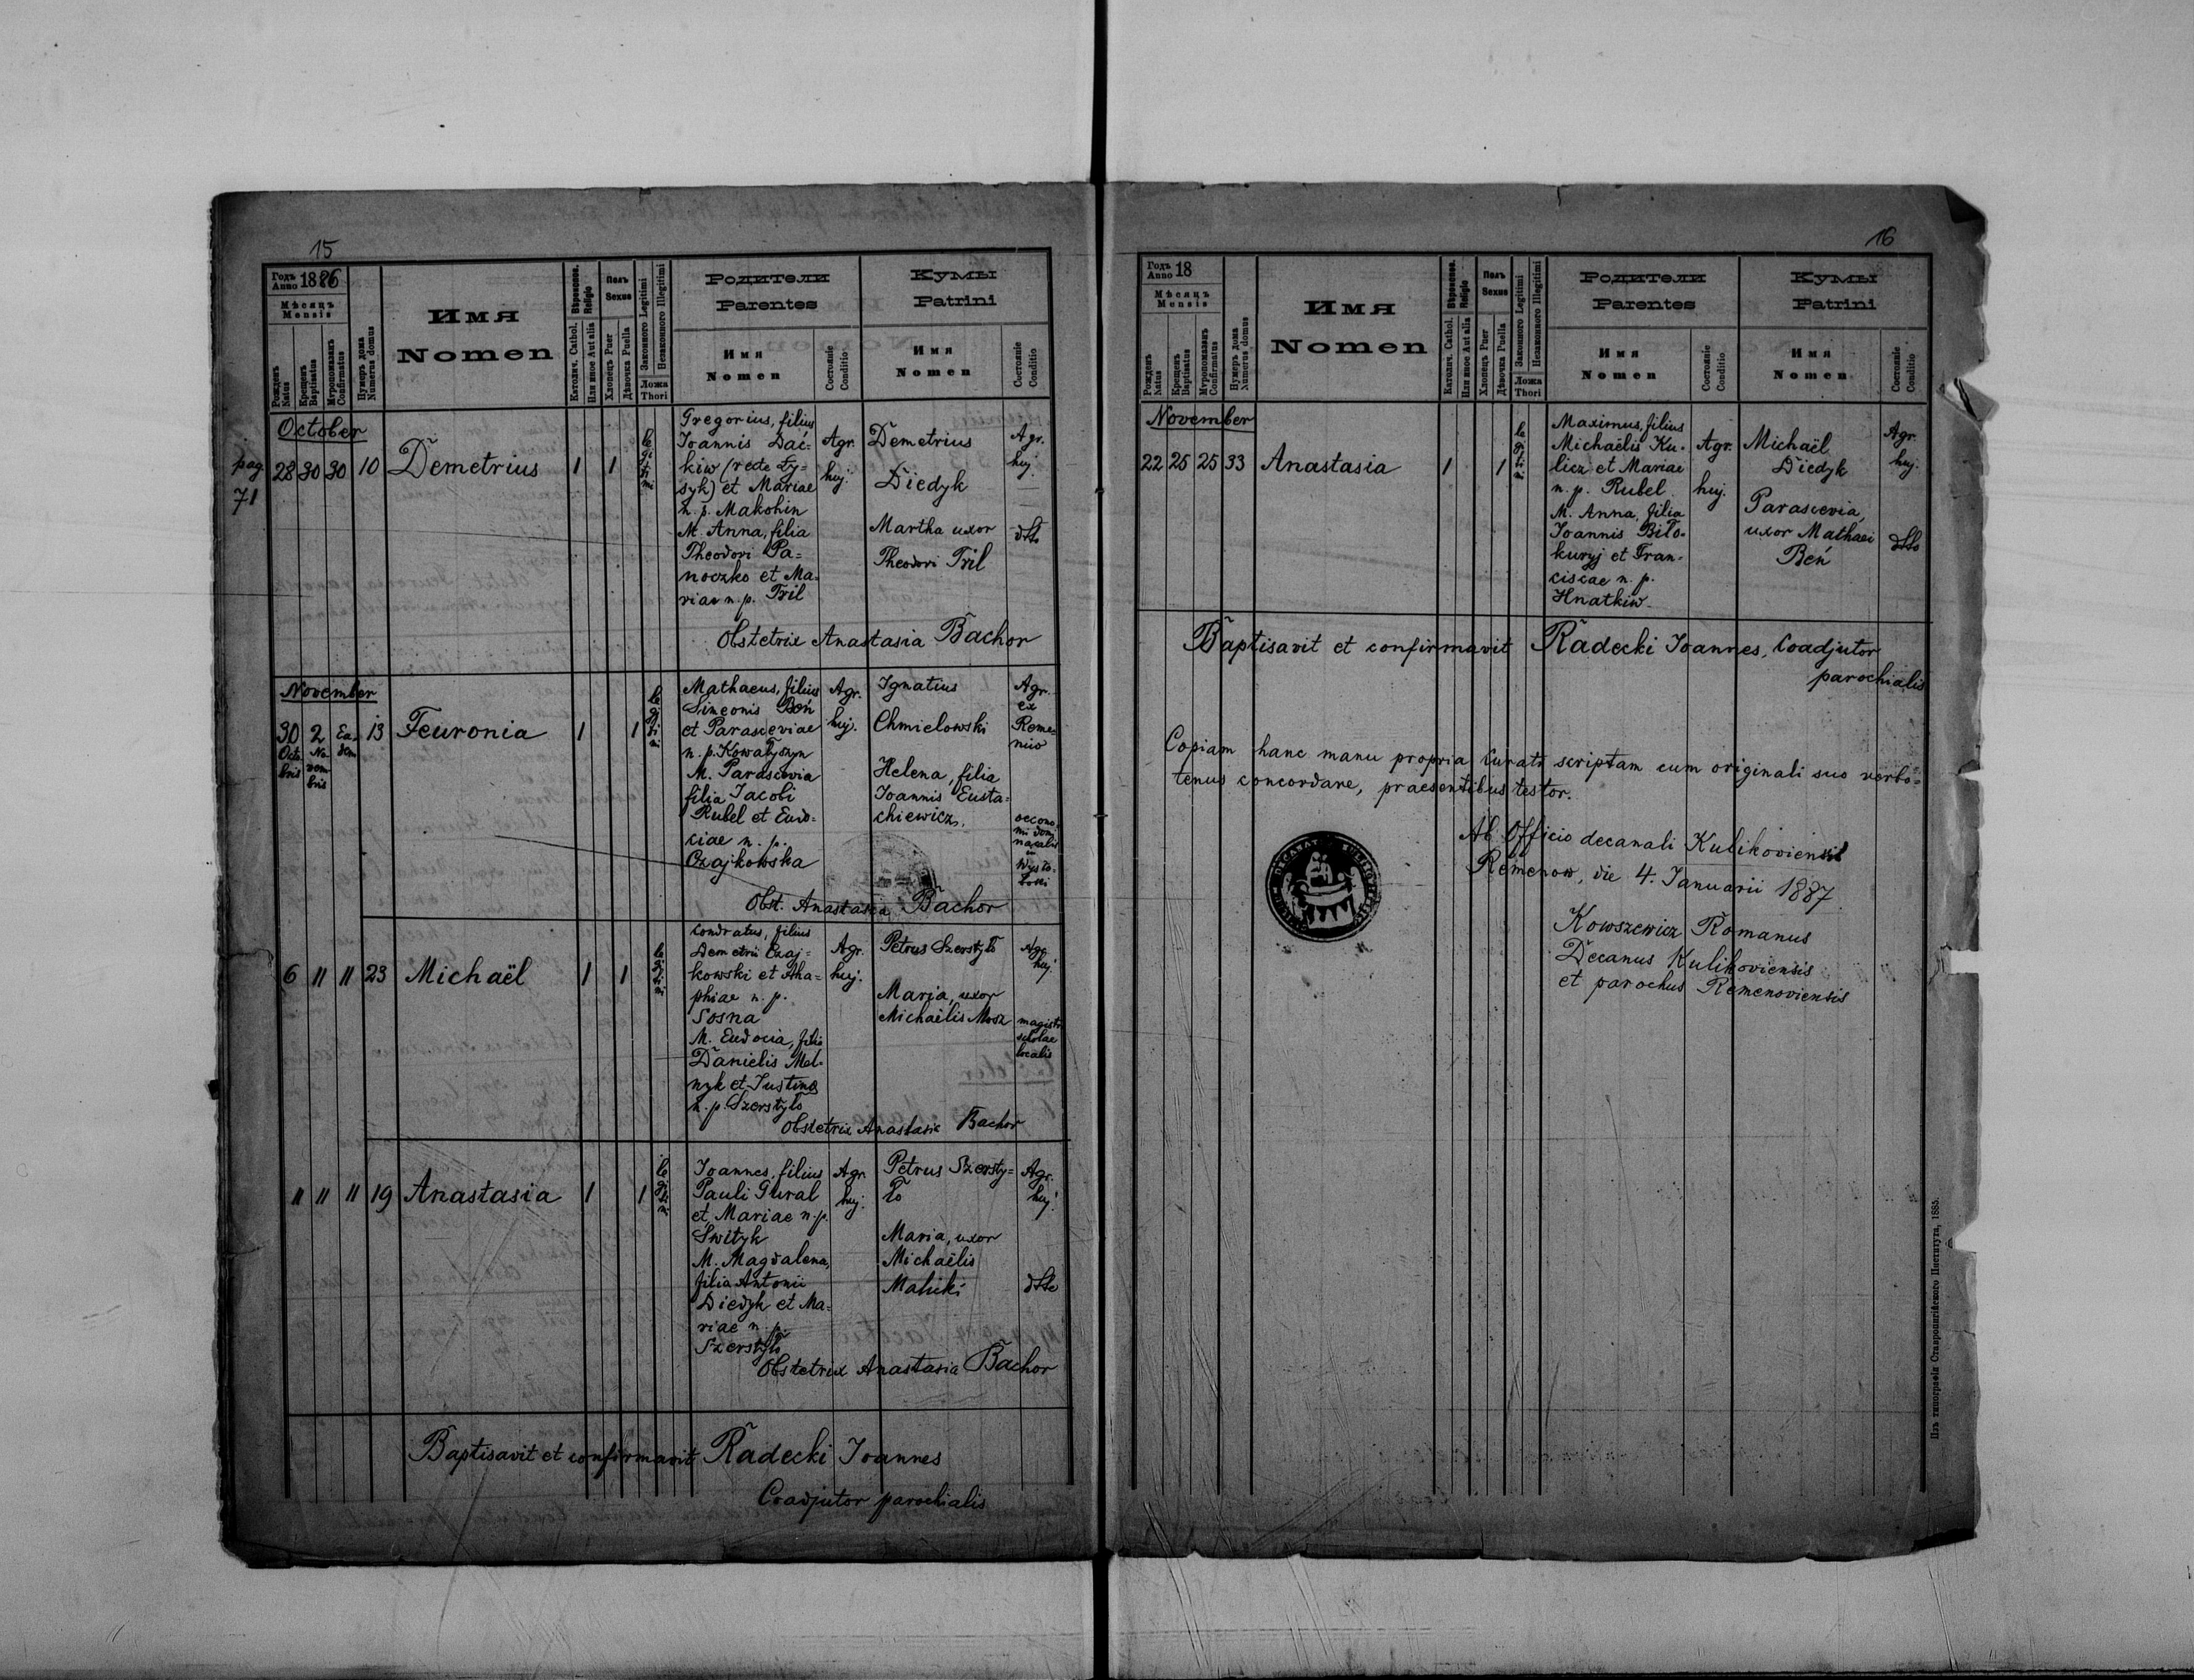 15
Годъ Anno 1886
Мѣсяцъ
Mensis
Рожденъ Natus
Крещенъ Baptisatus
Мѵропомазанъ Confirmatus
Нумеръ дома Numerus domus
Имя
Nomen
Вѣроиспов. Religio
Католич. Cathol.
Или иное Aut alia
Полъ
Sexus
Хлопець Puer
Дѣвочка Puella
Законного Legitimi
Незаконного Illegitimi
Ложа
Thori
Родители
Parentes
Имя
Nomen
Состояніе
Conditio
Кумы
Patrini
Имя
Nomen
Состояніе
Conditio
October
pag.
71
28 30 30 10 Demetrius 1 1 legitimi
Gregorius, filius
Joannis Dać-
kiw (recte Ły=
syk) et Mariae
n. p. Makohin
M. Anna, filia
Theodori Pa=
noczko et Ma-
riae n. p. Tril
Agr.
huj.
Demetrius
Diedyk
Martha uxor
Theodori Tril
Agr.
huj.
dtto
Obstetrix Anastasia Bachor
November
30 Octobris 2 Novembris Eadem 13 Feuronia 1 1 legitimi
Mathaeus, filius
Simeonis Beń
et Parasceviae
n. p. Kowałyszyn
M. Parascevia
filia Jacobi
Rubel et Eudo-
ciae n. p.
Czajkowska
Agr.
huj.
Ignatius
Chmielowski
Helena, filia
Joannis Eusta=
chiewicz,
Agr.
ex
Reme=
niw
oecono-
mi domi
nacalis
in
Wysło-
boki
Obst. Anastasia Bachor
6 11 11 23 Michaël 1 1 legitimi
Condratus, filius
Demetrii Czaj-
kowski et Aha=
phiae n. p.
Sosna
M. Eudocia, filia
Danielis Mel-
nyk et Justinae
n. p. Szerstyło
Agr.
huj.
Petrus Szerstyło
Maria, uxor
Michaëlis Mosz
Agr.
huj.
magistri
scholae
localis
Obstetrix Anastasia Bachor
11 11 11 19 Anastasia 1 1 legitimi
Joannes, filius
Pauli Gural
et Mariae n. p.
Swityk
M. Magdalena,
filia Antonii
Diedyk et Ma=
riae n. p.
Szerstyło
Agr.
huj.
Petrus Szersty=
ło
Maria, uxor
Michaëlis
Maluki
Agr.
huj.
dtto
Obstetrix Anastasia Bachor
Baptisavit et confirmavit Radecki Joannes
Coadjutor parochialis
16
Годъ Anno 18
Мѣсяцъ
Mensis
Рожденъ Natus
Крещенъ Baptisatus
Мѵропомазанъ Confirmatus
Нумеръ дома Numerus domus
Имя
Nomen
Вѣроиспов. Religio
Католич. Cathol.
Или иное Aut alia
Полъ
Sexus
Хлопець Puer
Дѣвочка Puella
Законного Legitimi
Незаконного Illegitimi
Ложа
Thori
Родители
Parentes
Имя
Nomen
Состояніе
Conditio
Кумы
Patrini
Имя
Nomen
Состояніе
Conditio
November
22 25 25 33 Anastasia 1 1
Maximus, filius
Michaëlis Ku-
licz et Mariae
n. p. Rubel
M. Anna, filia
Joannis Biło-
kuryj et Fran-
ciscae n. p.
Hnatkiw
Agr.
huj.
Michaël
Diedyk
Parascevia,
uxor Mathaei
Beń
Agr.
huj.
dtto
Baptisavit et confirmavit Radecki Joannes, Coadjutor
parochialis
Copiam hanc manu propria Curati scriptam cum originali suo verbo=
tenus concordare, praesentibus testor.
Ab Officio decanali Kulikoviensi
Remenow, die 4. Januarii 1887.
Kowszewicz Romanus
Decanus Kulikoviensis
et parochus Remenoviensis
Изъ типографіи Ставропигійского Института, 1885.